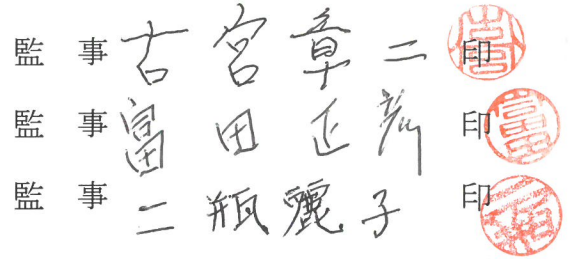 監 事 古宮章二 印
監 事 富田正彦 印
監 事 二瓶麗子 印